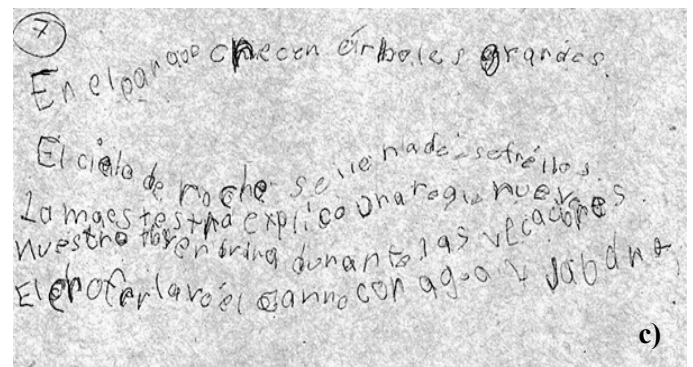 7
En el parque crecen árboles grandes
El cielo de noche se llena de estrellas
La maestestra explico una regla nueva
nuestro durante las vacaciones
El chofer lavo el carro con agua y
c)